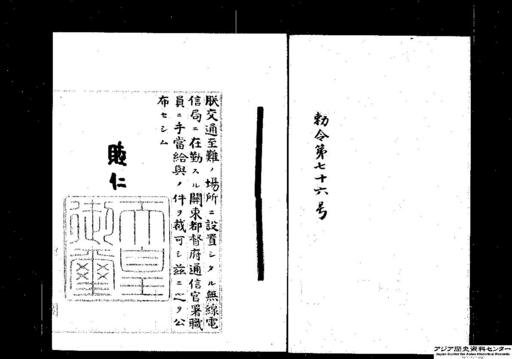 勅令第七十六号
朕交通至難ノ場所ニ設置シタル無線電
信局ニ在勤スル關東都督府通信官署職
員ニ手當給與ノ件ヲ裁可シ茲ニ之ヲ公
布セシム
睦仁
天皇
御璽
アジア歴史資料センター
Japan Center for Asian Historical Records